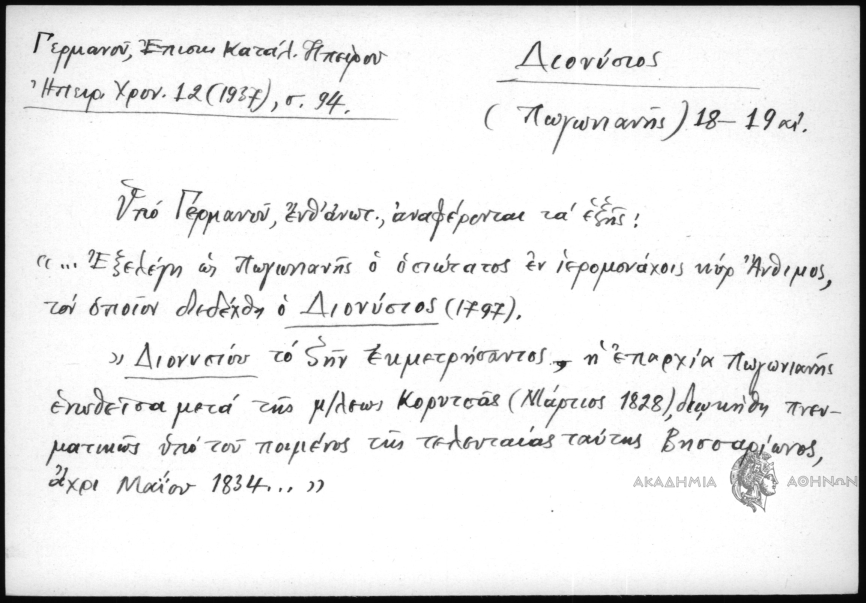 Γερμανοῦ, Ἐπισκ. Κατάλ. Ἠπείρου
Ἠπειρ. Χρον. 12 (1937), σ. 94.
Διονύσιος
(Πωγωνιανῆς) 18-19 αἰ.
Ὑπό Γερμανοῦ, ἔνθ' ἀνωτ., ἀναφέρονται τά ἑξῆς:
«... Ἐξελέγη ὡς Πωγωνιανῆς ὁ ὁσιώτατος ἐν ἱερομονάχοις κύρ Ἄνθιμος,
τόν ὁποῖον διεδέχθη ὁ Διονύσιος (1797).
» Διονυσίου τό ζῆν ἐκμετρήσαντος, ἡ ἐπαρχία Πωγωνιανῆς
ἑνωθεῖσα μετά τῆς μ/λεως Κορυτσᾶς (Μάρτιος 1828), διῳκήθη πνευ-
ματικῶς ὑπό τοῦ ποιμένος τῆς τελευταίας ταύτης Βησσαρίωνος,
ἄχρι Μαΐου 1834...»
ΑΚΑΔΗΜΙΑ ΑΘΗΝΩΝ